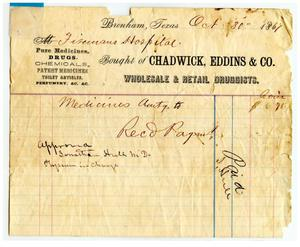 Brenham, Texas Oct 30 1867
Mr Firemans Hospital
Bought of CHADWICK, EDDINS & CO.
WHOLESALE & RETAIL DRUGGISTS.
Pure Medicines,
DRUGS.
CHEMICALS,
PATENT MEDICINES
TOILET ARTICLES,
PERFUMERY, &C. &C.
Medicines
Rec'd Paymt
Approved
Jonathan Hull M.D.
Physician in Charge
Paid